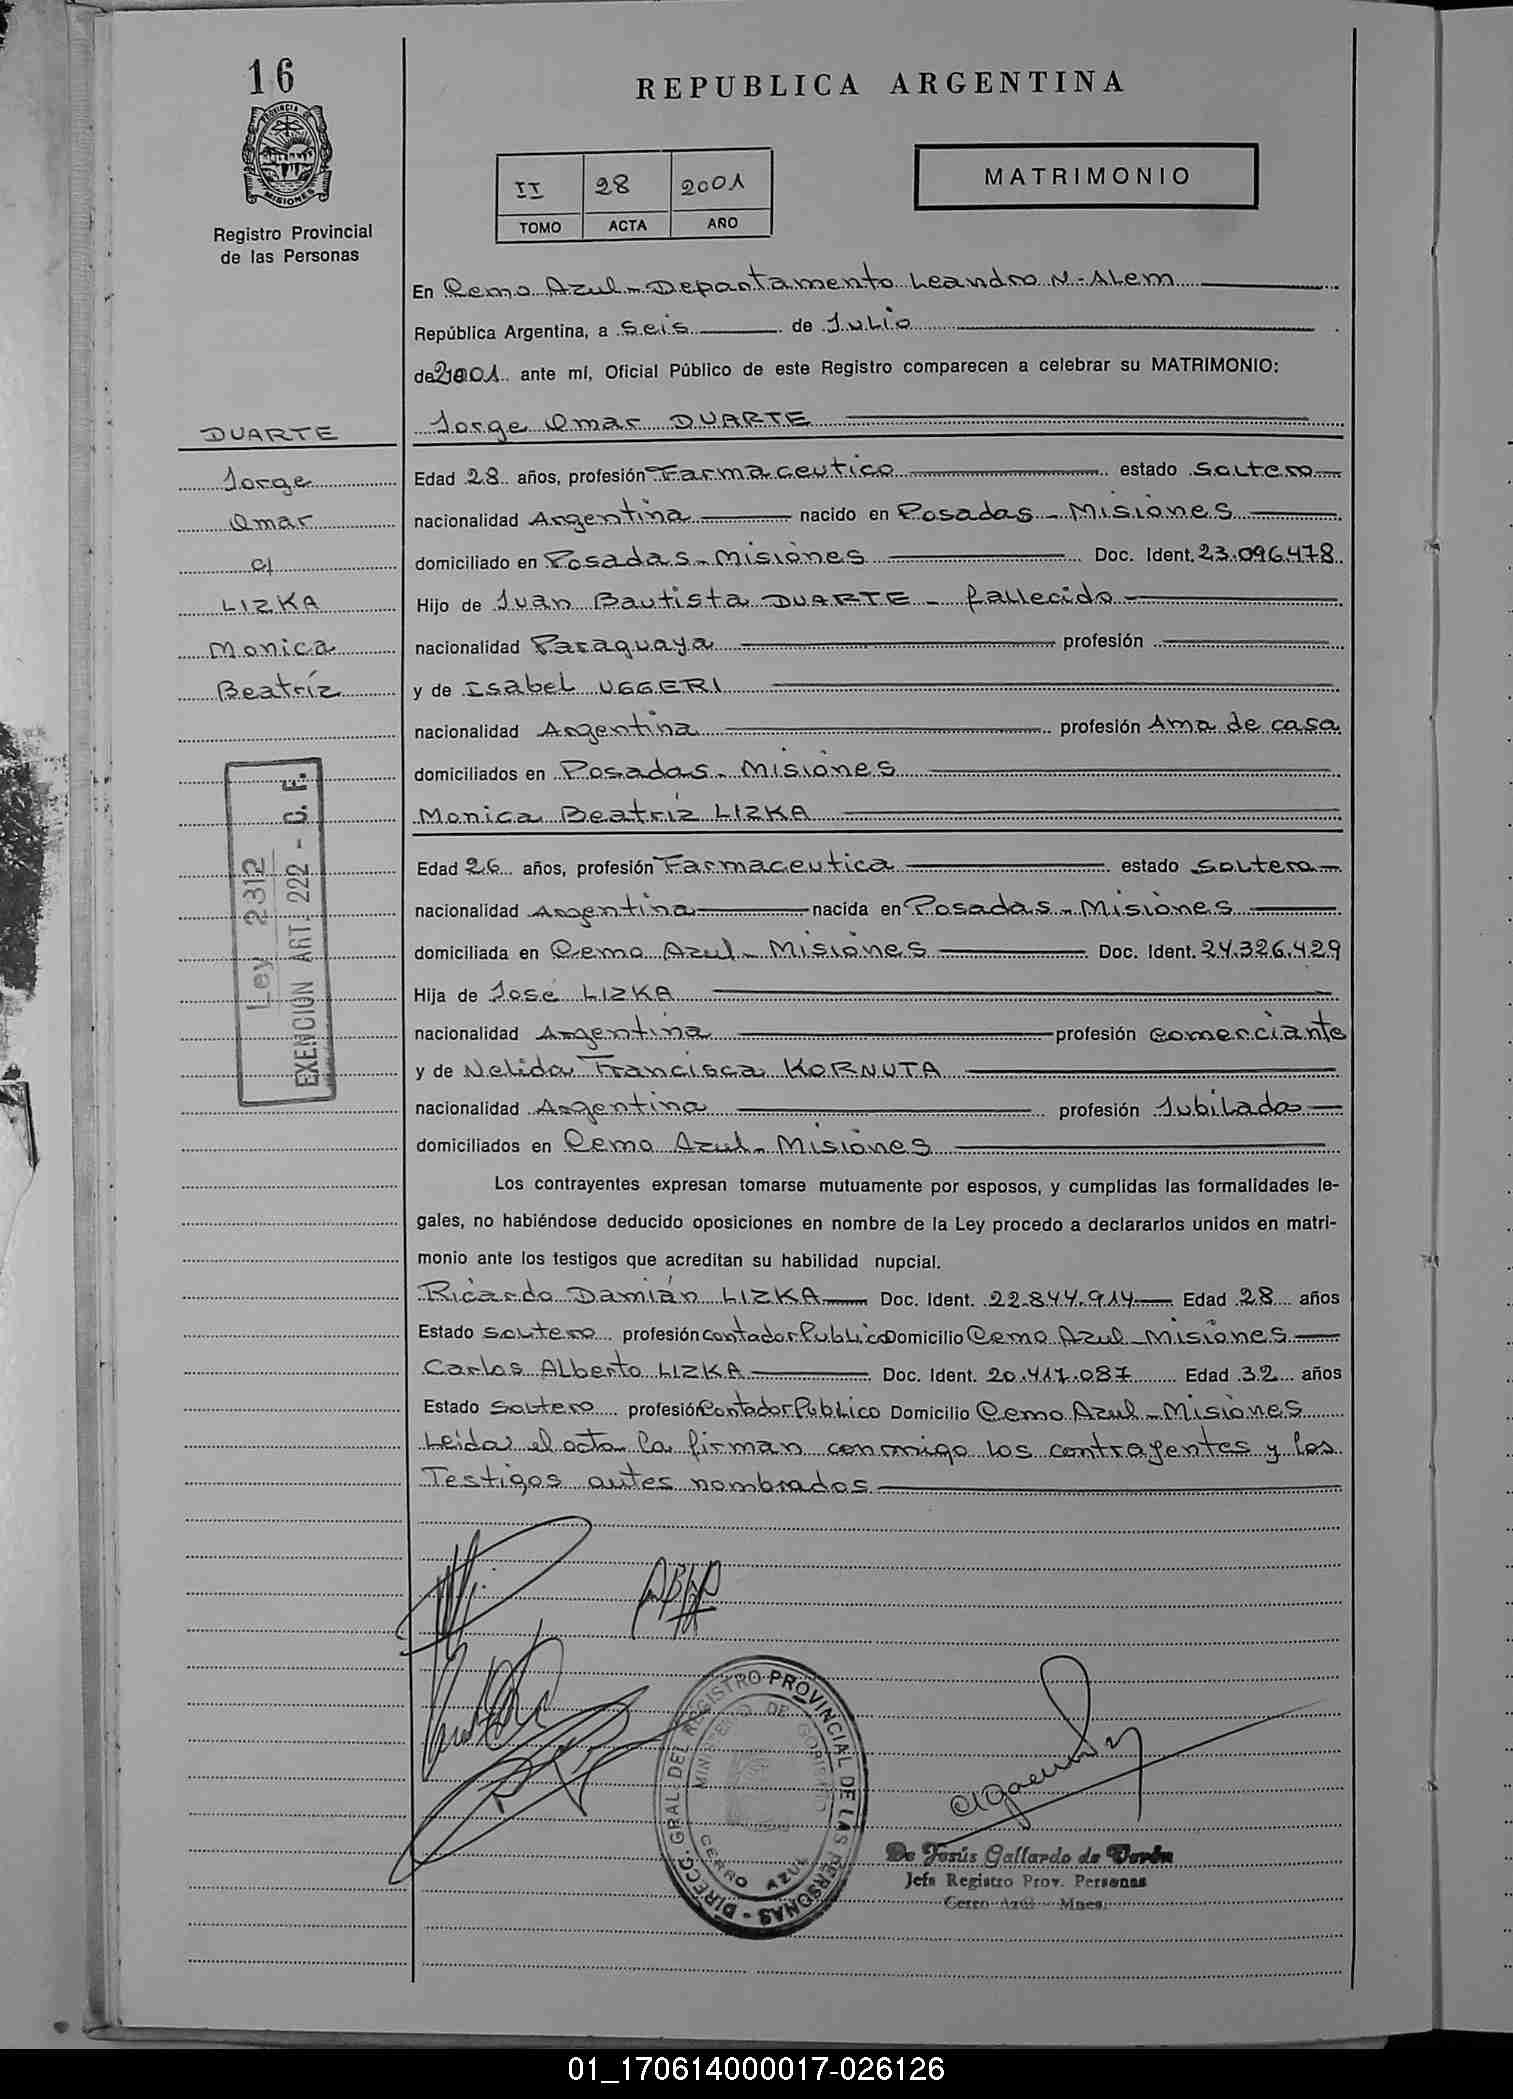 16
REPUBLICA ARGENTINA
PROVINCIA DE
MISIONES
Registro Provincial
de las Personas
II 28 2001
TOMO ACTA AÑO
MATRIMONIO
En Cerro Azul - Departamento Leandro N. Alem
República Argentina, a Seis de Julio
de 2001 ante mí, Oficial Público de este Registro comparecen a celebrar su MATRIMONIO:
DUARTE
Jorge
Omar
c/
LIZKA
Monica
Beatríz
Jorge Omar DUARTE
Edad 28 años, profesión Farmaceutico estado Soltero
nacionalidad Argentina nacido en Posadas - Misiones
domiciliado en Posadas - Misiones Doc. Ident. 23.096.478
Hijo de Juan Bautista DUARTE - fallecido
nacionalidad Paraguaya profesión
y de Isabel UGGERI
nacionalidad Argentina profesión Ama de casa
domiciliados en Posadas - Misiones
Monica Beatríz LIZKA
Edad 26 años, profesión Farmaceutica estado Soltera
nacionalidad Argentina nacida en Posadas - Misiones
domiciliada en Cerro Azul - Misiones Doc. Ident. 24.326.429
Hija de José LIZKA
nacionalidad Argentina profesión Comerciante
y de Nelida Francisca KORNUTA
nacionalidad Argentina profesión Jubilada
domiciliados en Cerro Azul - Misiones
Ley 2312
EXENCION ART. 222 - C. F.
Los contrayentes expresan tomarse mutuamente por esposos, y cumplidas las formalidades le-
gales, no habiéndose deducido oposiciones en nombre de la Ley procedo a declararlos unidos en matri-
monio ante los testigos que acreditan su habilidad nupcial.
Ricardo Damián LIZKA Doc. Ident. 22.844.914 Edad 28 años
Estado Soltero profesión Contador Publico Domicilio Cerro Azul - Misiones
Carlos Alberto LIZKA Doc. Ident. 20.417.087 Edad 32 años
Estado Soltero profesión Contador Publico Domicilio Cerro Azul - Misiones
Leida el acta la firman conmigo los contrayentes y los
Testigos antes nombrados
DIRECC. GRAL. DEL REGISTRO PROVINCIAL DE LAS PERSONAS -
MINISTERIO DE GOBIERNO
CERRO AZUL
De Jesús Gallardo de Verón
Jefa Registro Prov. Personas
Cerro Azul Mnes.
01_170614000017-026126